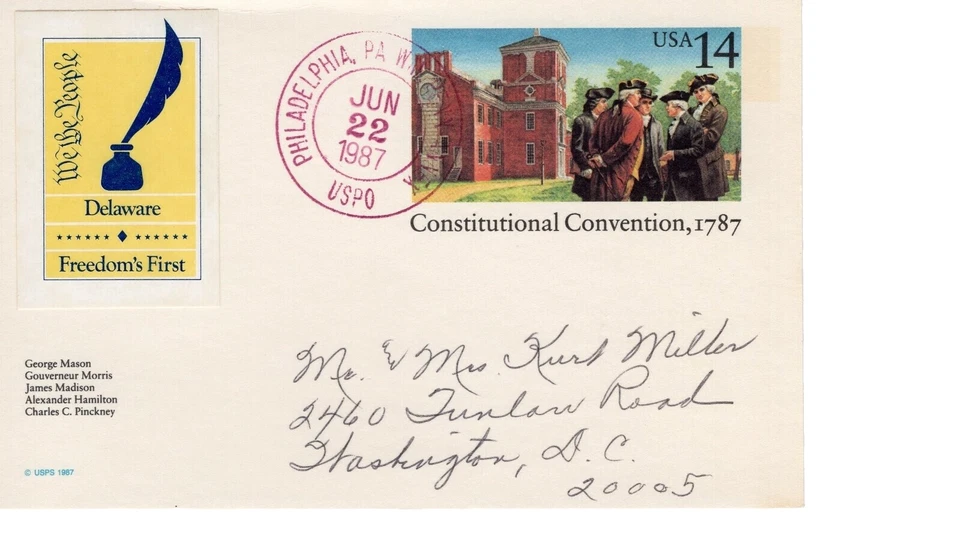 We the People
Delaware
Freedom's First
PHILADELPHIA, PA
JUN
22
1987
USPO
USA 14
Constitutional Convention, 1787
George Mason
Gouverneur Morris
James Madison
Alexander Hamilton
Charles C. Pinckney
© USPS 1987
Mr. & Mrs. Kurt Miller
2460 Tunlaw Road
Washington, D.C.
20005